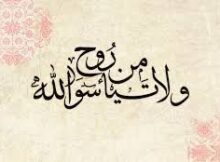 ولا تيأسوا من رَوح الله